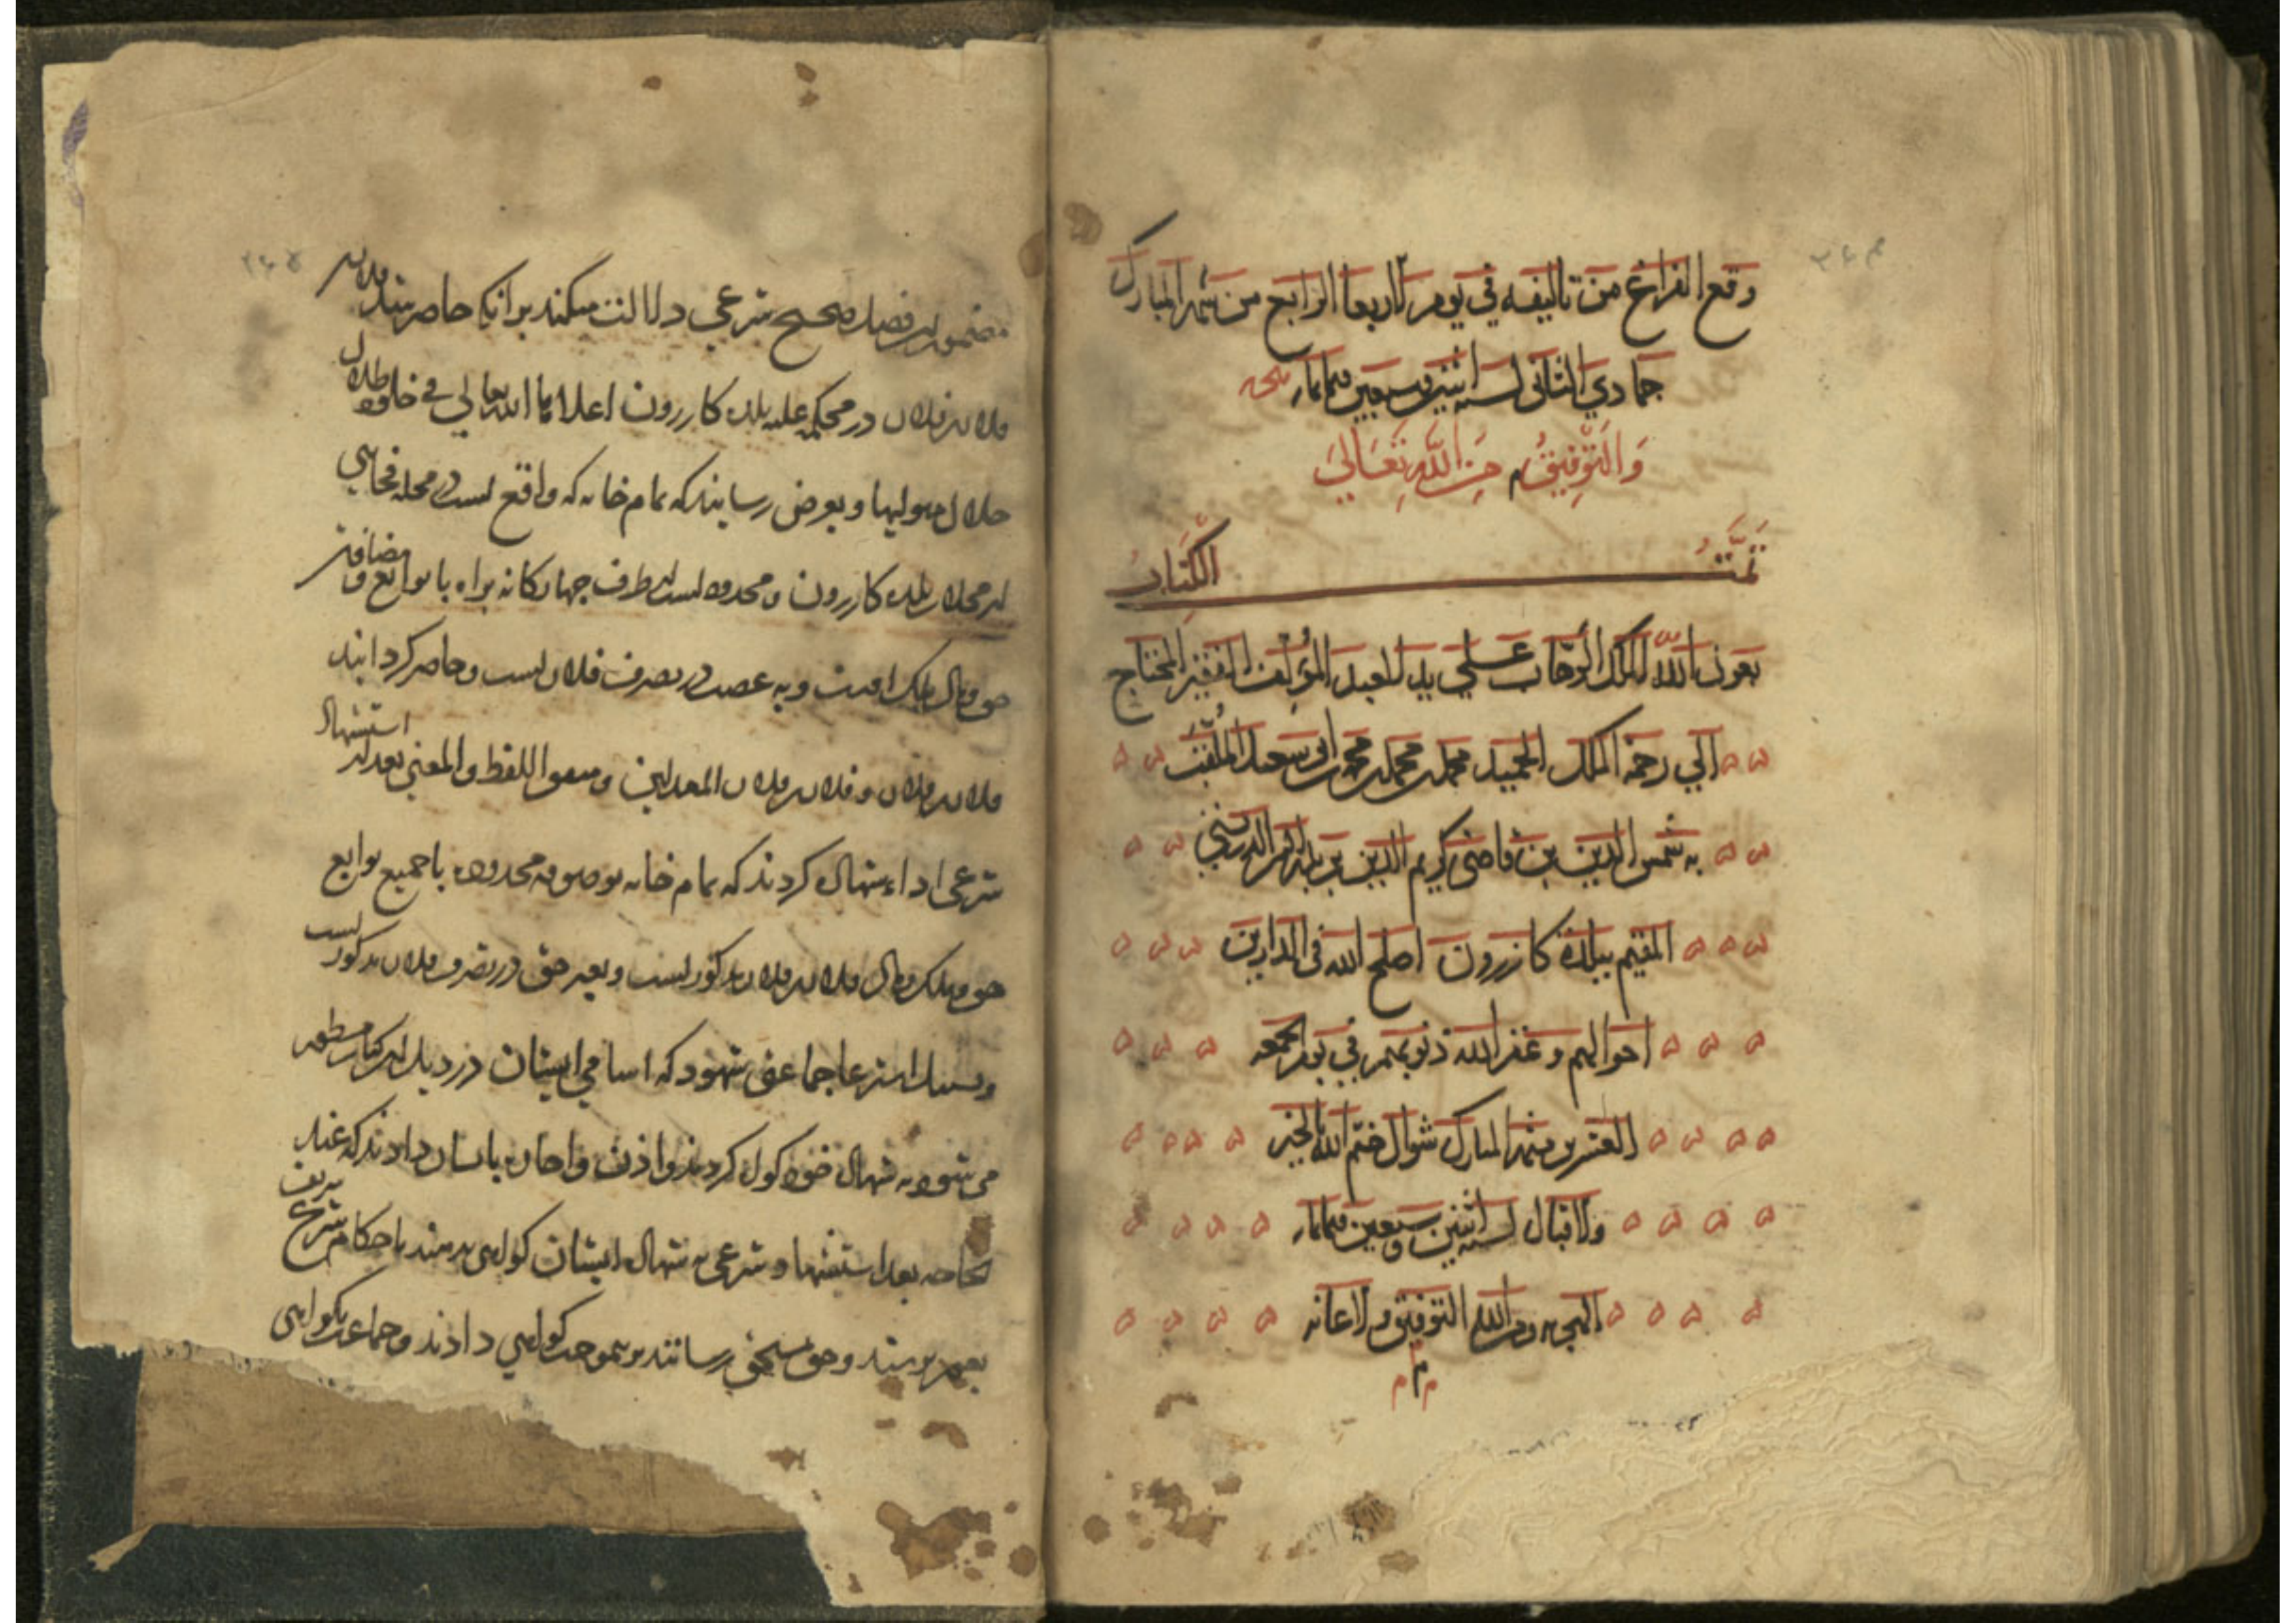 وقع الفراغ من تاليفه في يوم الاربعا الرابع من شهر المبارك
جمادي الثاني لسنه اثنين وسبعين وثمانمائه
والتوفيق من الله تعالى
تمت الكتاب
بعون الله الملك الوهاب على يد العبد المؤلف الفقير المحتاج
الي رحمة الملك الحميد محمد بن محمد بن محمد ابى سعيد الملقب
به شمس الدين بن قاضى كريم الدين بن
المقيم ببلدة كازرون اصلح الله فى الدارين
احوالهم و غفر الله ذنوبهم في يوم الجمعه
العشرين من شهر المبارك شوال ختم الله بالخير
والاقبال لسنه اثنين وسبعين وثمانمائه
الهجريه ومن الله التوفيق والاعانه
مضمون اين فصل صحيح شرعي دلالت ميكند برانكه حاضر شد فلان بن
فلان بن فلان در محكمه عليه بلده كازرون اعلاها الله تعالي في
جلال موليها و بعرض رسانيد كه تمام خانه كه واقع است در محله
از محلات بلده كازرون و محدوده است از طرف چهاركانه براه با توابع و مضافات
حق و مال ملك اوست و به غصب در تصرف فلان است و حاضر كردانيد
فلان بن فلان و فلان بن فلان المعدلين و متفق اللفظ و المعنى بعد از استشهاد
شرعى اداء شهاده كردند كه تمام خانه موصوفه محدوده با جميع توابع
حق و ملك و مال فلان بن فلان مذكور است و بغير حق در تصرف فلان مذكور است
جماعتى شهود كه اسامي ايشان در ذيل اين كتاب مسطور
مى شود به شهاده خود كردند و اذن و اجازه بايشان دادند كه عند
الحاجه بعد استشهاد شرعى به شهاده ايشان كواهى بدهند باحكام شرع شريف
و حق بمستحق رسانند برين موجب كواهي دادند و جماعت بكواهى